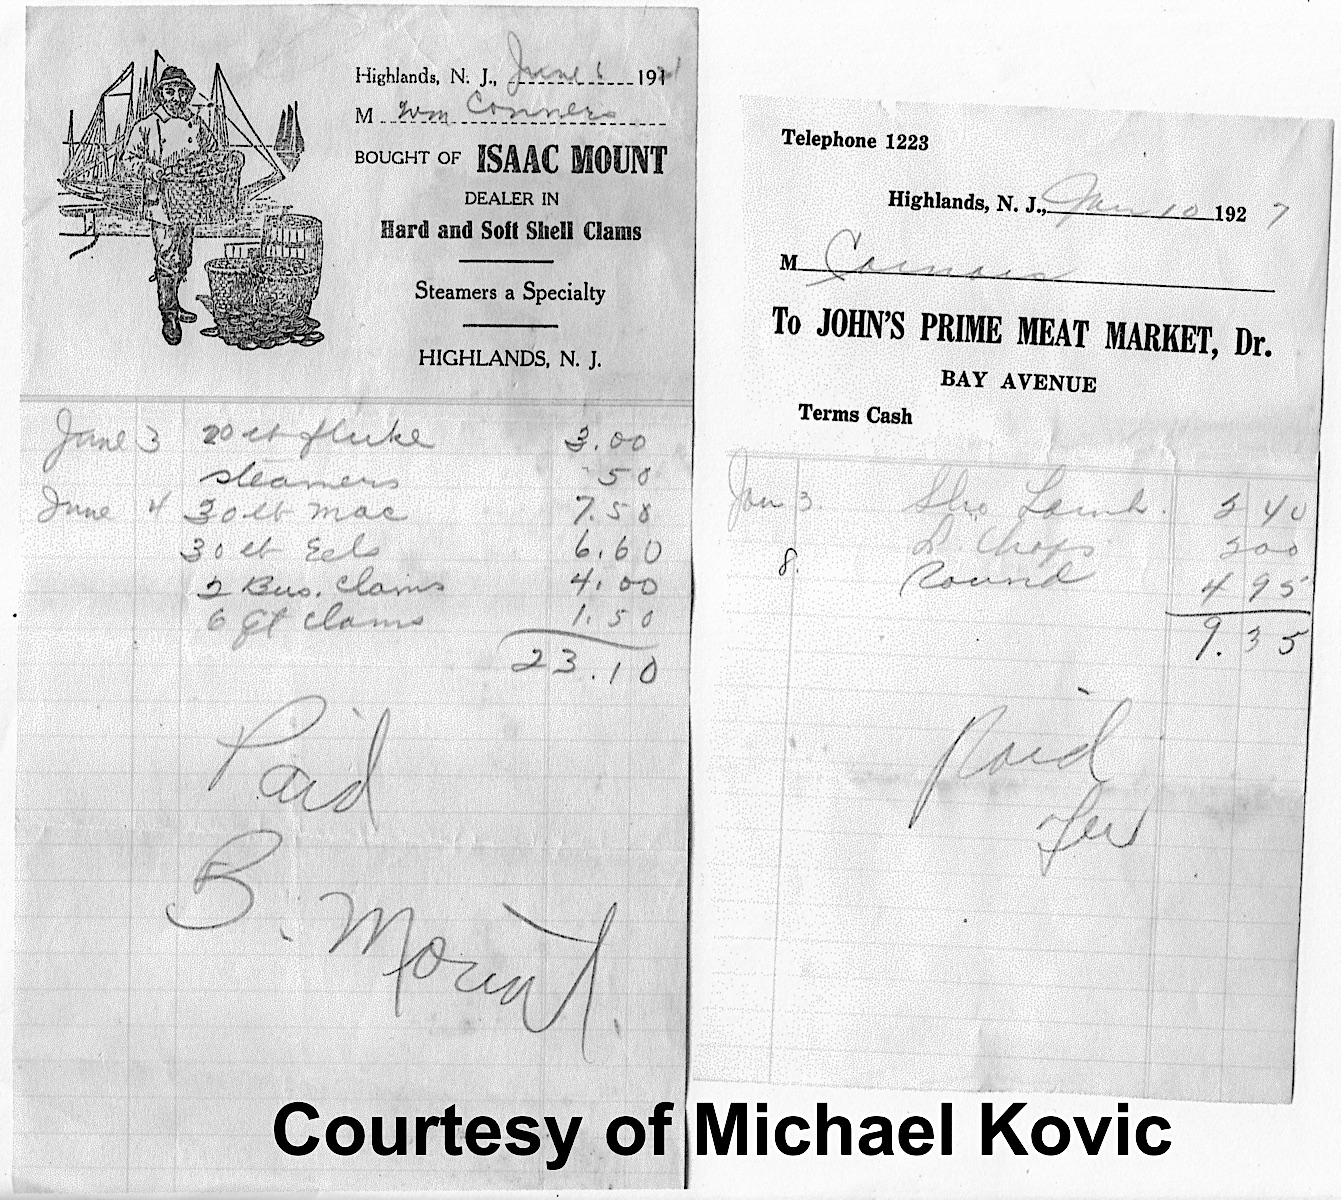 Highlands, N. J., June 6 192
M Wm Conners
BOUGHT OF ISAAC MOUNT
DEALER IN
Hard and Soft Shell Clams
Steamers a Specialty
HIGHLANDS, N. J.
June 3 20 lb fluke 3.00
steamers 50
June 4 30 lb mac 7.50
30 lb Eels 6.60
2 Bus. Clams 4.00
6 qt Clams 1.50
23.10
Paid
B. Mount.
Telephone 1223
Highlands, N. J., Jan 10 1927
M Connors
To JOHN'S PRIME MEAT MARKET, Dr.
BAY AVENUE
Terms Cash
Jan 3. Lamb. 2 40
L. Chops 200
8. Round 4 95
9.35
Paid
Courtesy of Michael Kovic